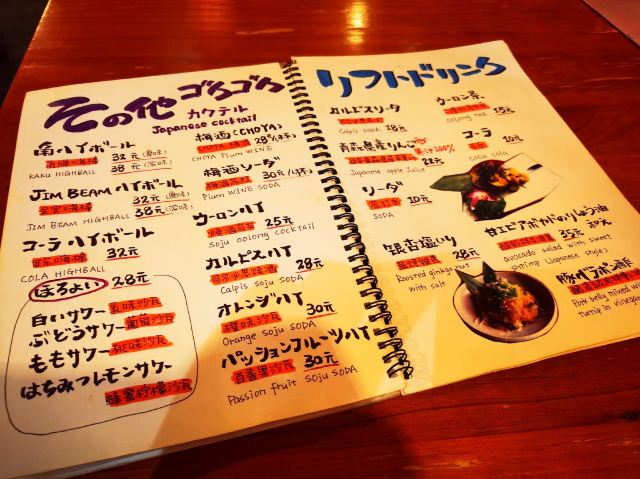 その他 ゴクゴク
カクテル
Japanese cocktail
角ハイボール
32元(原味)
38元(濃味)
KAKU HIGHBALL
JIM BEAM ハイボール
32元(原味)
38元(濃味)
JIM BEAM HIGHBALL
コーラハイボール
32元
COLA HIGHBALL
ほろよい 28元
白いサワー 乳味沙瓦
ぶどうサワー 葡萄沙瓦
ももサワー 桃味沙瓦
はちみつレモンサワー
蜂蜜柠檬沙瓦
梅酒(CHOYA)
28元(1杯)
CHOYA Plum WINE
梅酒ソーダ
30元(1杯)
Plum WINE SODA
ウーロンハイ
25元
Soju oolong cocktail
カルピスハイ
28元
Calpis soju SODA
オレンジハイ
橙味沙瓦 30元
Orange soju SODA
パッションフルーツハイ
百香果沙瓦 30元
Passion fruit soju SODA
ソフトドリンク
カルピスソーダ
18元
Calpis SODA
青森県産りんご
100%
22元
Japanese apple Juice
ソーダ
10元
ウーロン茶
15元
oolong tea
コーラ
10元
coca cola
銀杏塩いり
28元
Roasted ginkgo nut
with salt
甘エビアボカドのりしょう油
35元
avocado salad with sweet
shrimp (Japanese style)
豚バラポン酢
Pork belly mixed with
turnip in vinegar